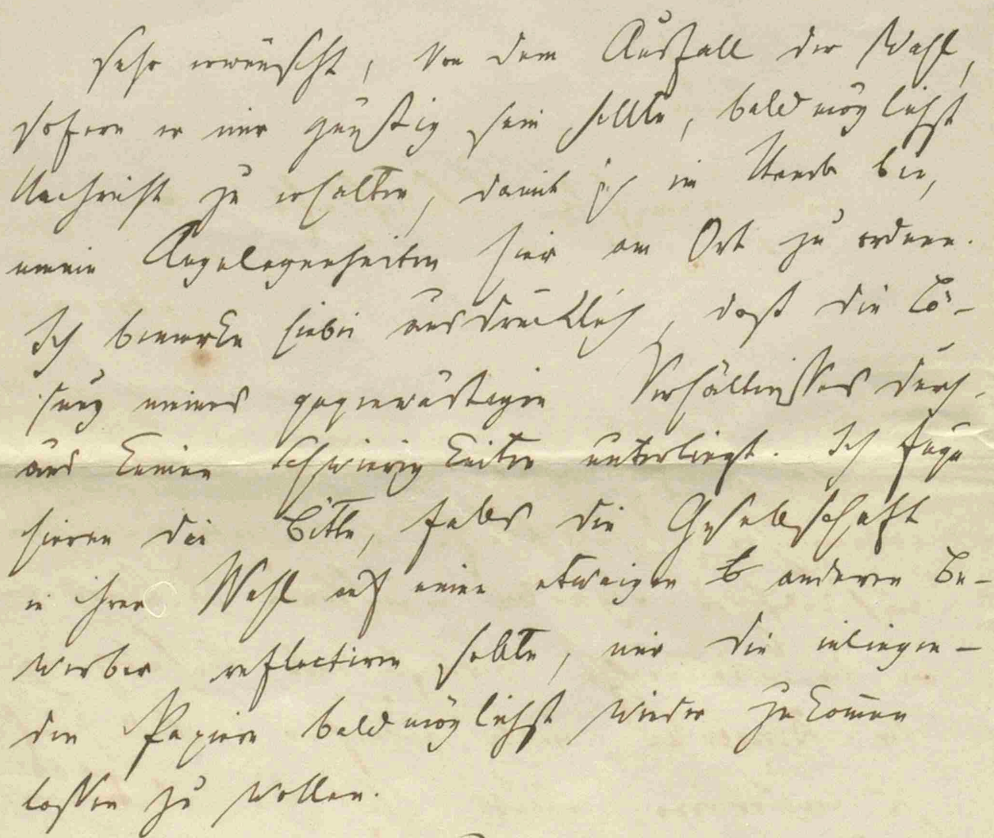 sehr erwünscht, von dem Ausfall der Wahl,
sofern er mir günstig sein sollte, baldmöglichst
Nachricht zu erhalten, damit ich im Stande bin,
meine Angelegenheiten hier am Ort zu ordnen.
Ich bemerke hiebei ausdrücklich, daß die Lö-
sung meines gegenwärtigen Verhältnisses durch-
aus keinen Schwierigkeiten unterliegt. Ich füge
hieran die Bitte, falls die Gesellschaft
in ihrer Wahl auf einen etwaigen anderen Be-
werber reflectiren sollte, mir die inliegen-
den Papiere baldmöglichst wieder zukommen
lassen zu wollen.